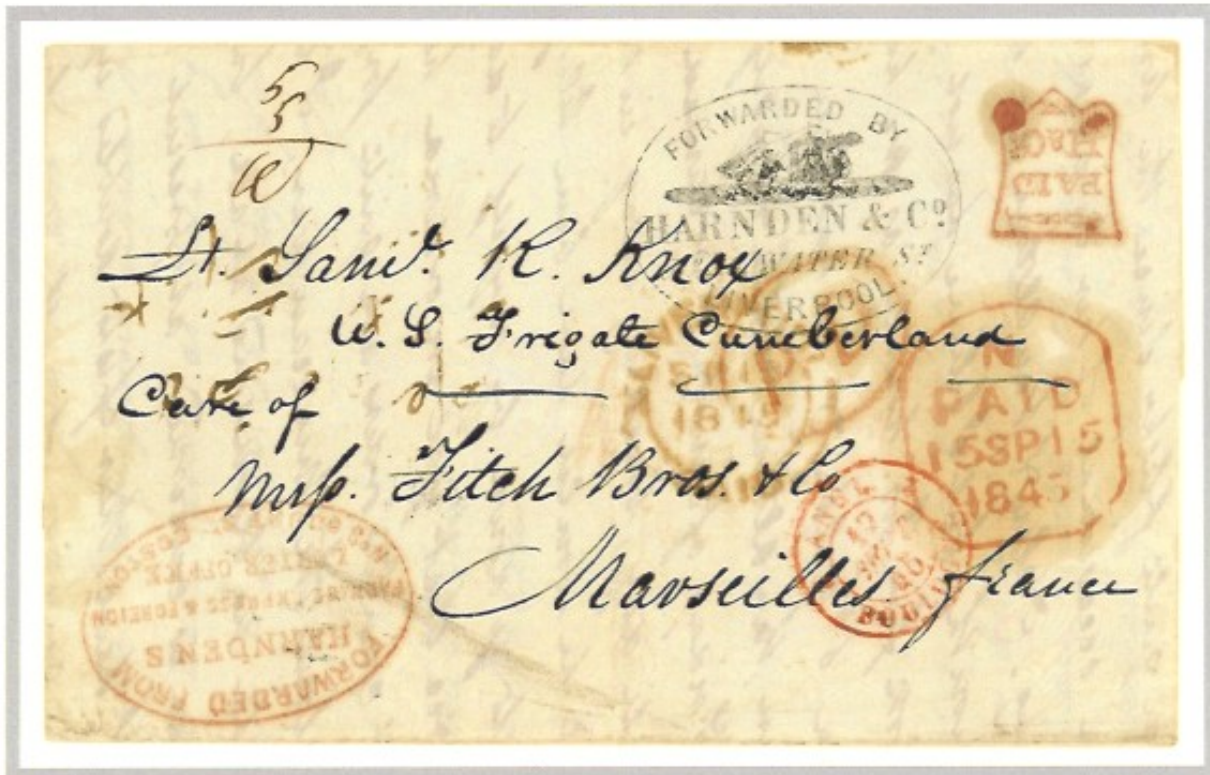 5
5
10
FORWARDED BY
HARNDEN & Cº
WATER Sᵗ
LIVERPOOL.
PAID
Lt. Saml. R. Knox
U. S. Frigate Cumberland
Care of
Mess. Fitch Bros. & Co
Marseilles france
N
PAID
15SP15
1845
BOULOGNE
FORWARDED FROM
HARNDEN'S
PACKAGE EXPRESS & FOREIGN
LETTER OFFICE
BOSTON